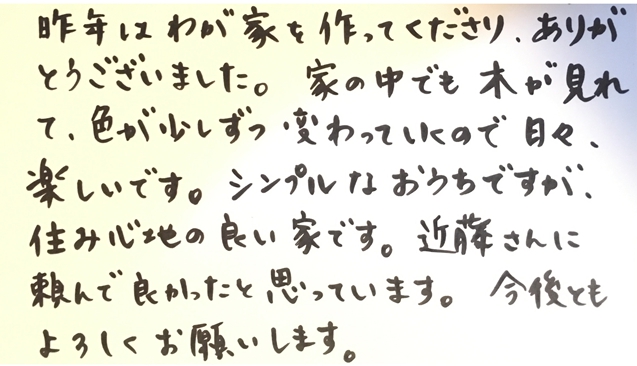 昨年はわが家を作ってくださり、ありが
とうございました。 家の中でも木が見れ
て、色が少しずつ変わっていくので日々、
楽しいです。シンプルなおうちですが、
住み心地の良い家です。近藤さんに
頼んで良かったと思っています。 今後とも
よろしくお願いします。